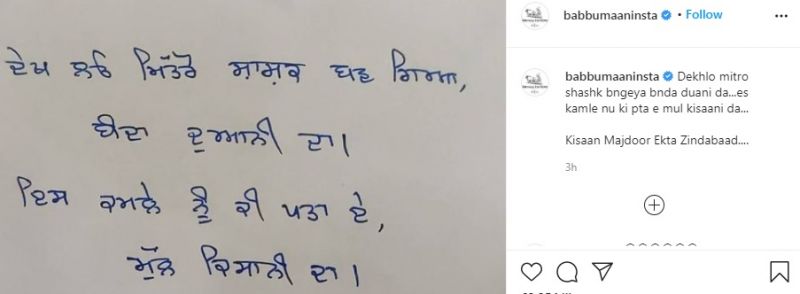 ਦੇਖ ਲਓ ਮਿੱਤਰੋ ਸ਼ਾਸ਼ਕ ਬਣ ਗਿਆ,
ਬੰਦਾ ਦੁਆਨੀ ਦਾ।
ਇਸ ਕਮਲੇ ਨੂੰ ਕੀ ਪਤਾ ਏ,
ਮੁੱਲ ਕਿਸਾਨੀ ਦਾ।
babbumaaninsta • Follow
babbumaaninsta Dekhlo mitro
shashk bngeya bnda duani da...es
kamle nu ki pta e mul kisaani da...
Kisaan Majdoor Ekta Zindabaad....
3h